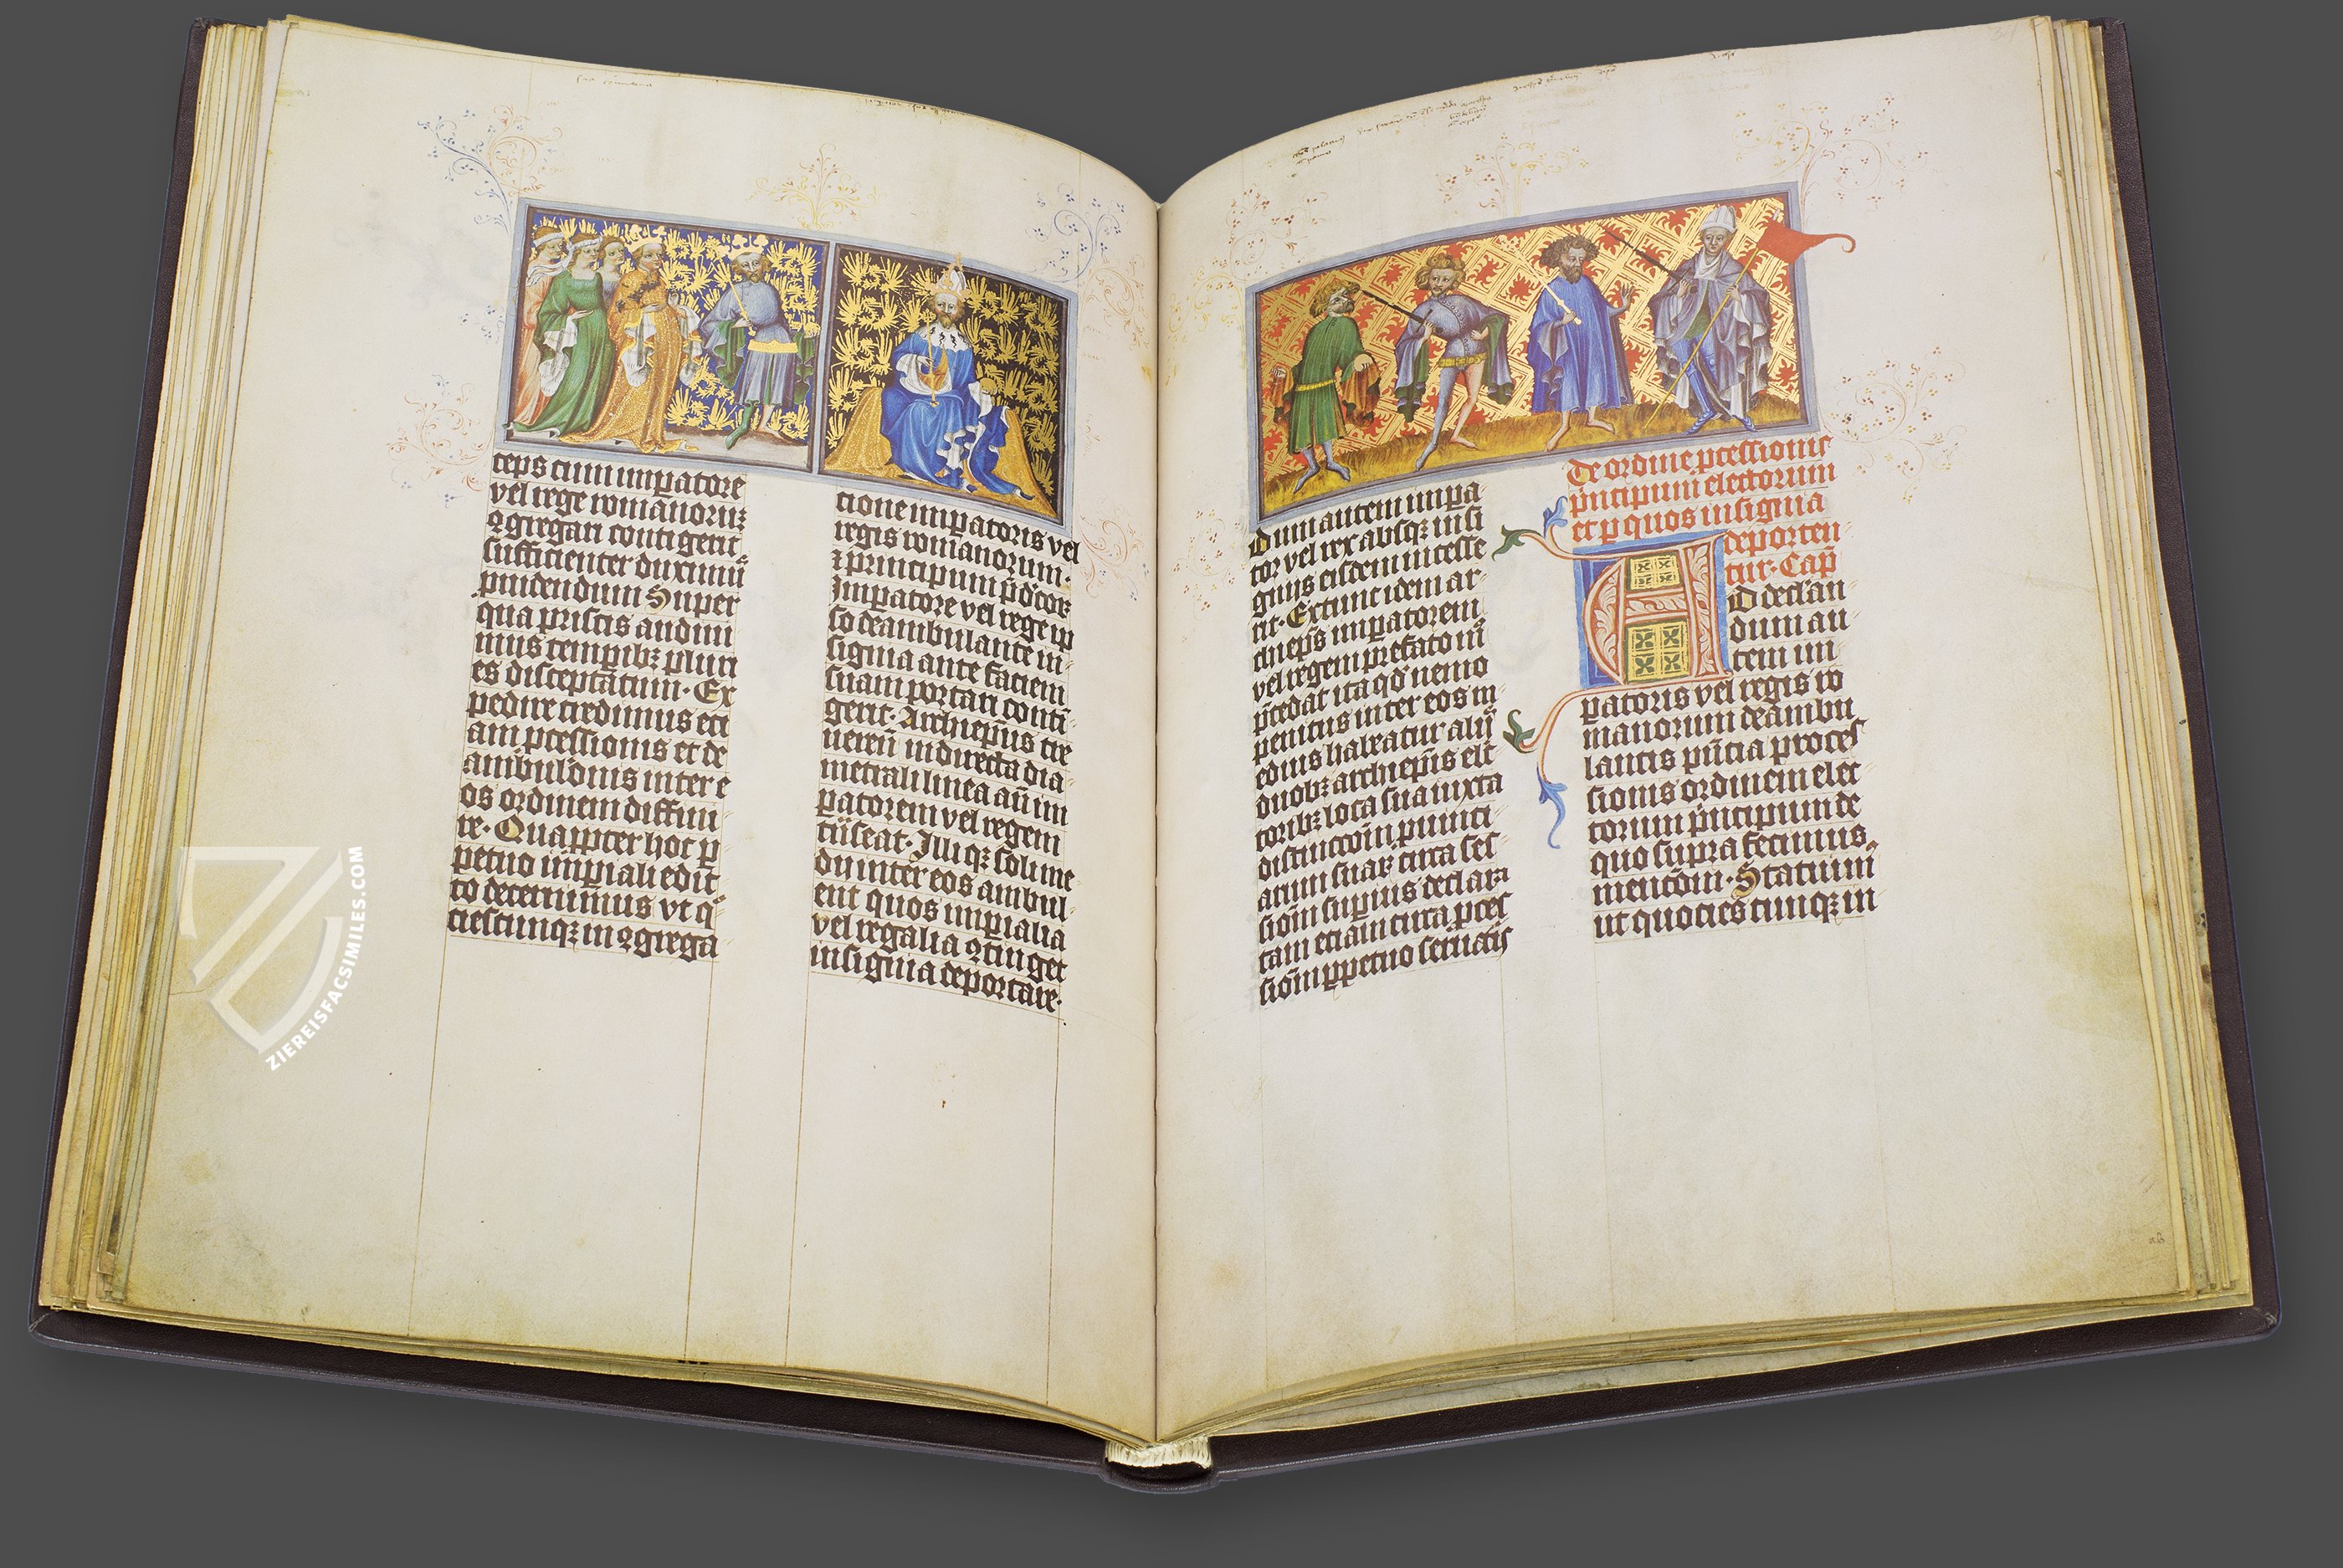 ceps cum impatore
vel rege romanoruz
ꝯgregari contigerit
sufficienter duximꝰ
puidendum Super
qua priscis audiui
mus tempibꝫ pluri
es disceptatum· Ex
pedire credimus eci
am pcessionis et de
ambulōnis inter e
os ordinem diffini
re· Quappter hoc ꝑ
petuo impiali edic
to decernimus vt qͦ
ciescunqꝫ in ꝯgrega
cione impatoris vel
regis romanorum·
⁊ principum p̄dc̄oꝝ
Impatore vel rege ip
so deambulante in
signia ante faciem
suam portari conti
gerit· Archiepūs tre
uereñ in directa dia
metrali linea añ im
patorem vel regem
tn̄seat· Illiqꝫ soli me
dij inter eos ambul
ent quos impialia
vel regalia ꝯtinget
insignia deportare·
Dum autem impa
tor vel rex absqꝫ insi
gnijs eisdem incesse
rit· Extunc idem ar
chiep̄s impatorem
vel regem prefato mͦ
p̄cedat ita qd̓ nemo
penitus inter eos m
edius habeatur alijs
duobꝫ archiep̄is elc̄
toribꝫ loca sua iuxta
distincc̄oīm puinci
arum suaꝝ circa ses
sioīm supius declara
tam eciam circa pces
sioīm ppetuo seruatis
De ordine pcessionis
pͥncipum electorum
et p quos insignia
deporten
tur· Cap̄
Ad declan
dum au
tem im
patoris vel regis ro
manorum deambu
lantis pn̄cia proces
sionis ordinem elec
torum pͥncipum de
quo supra fecimus
menc̄oīm· Statuimꝰ
ut quociescunqꝫ in
ZIEREISFACSIMILES.COM